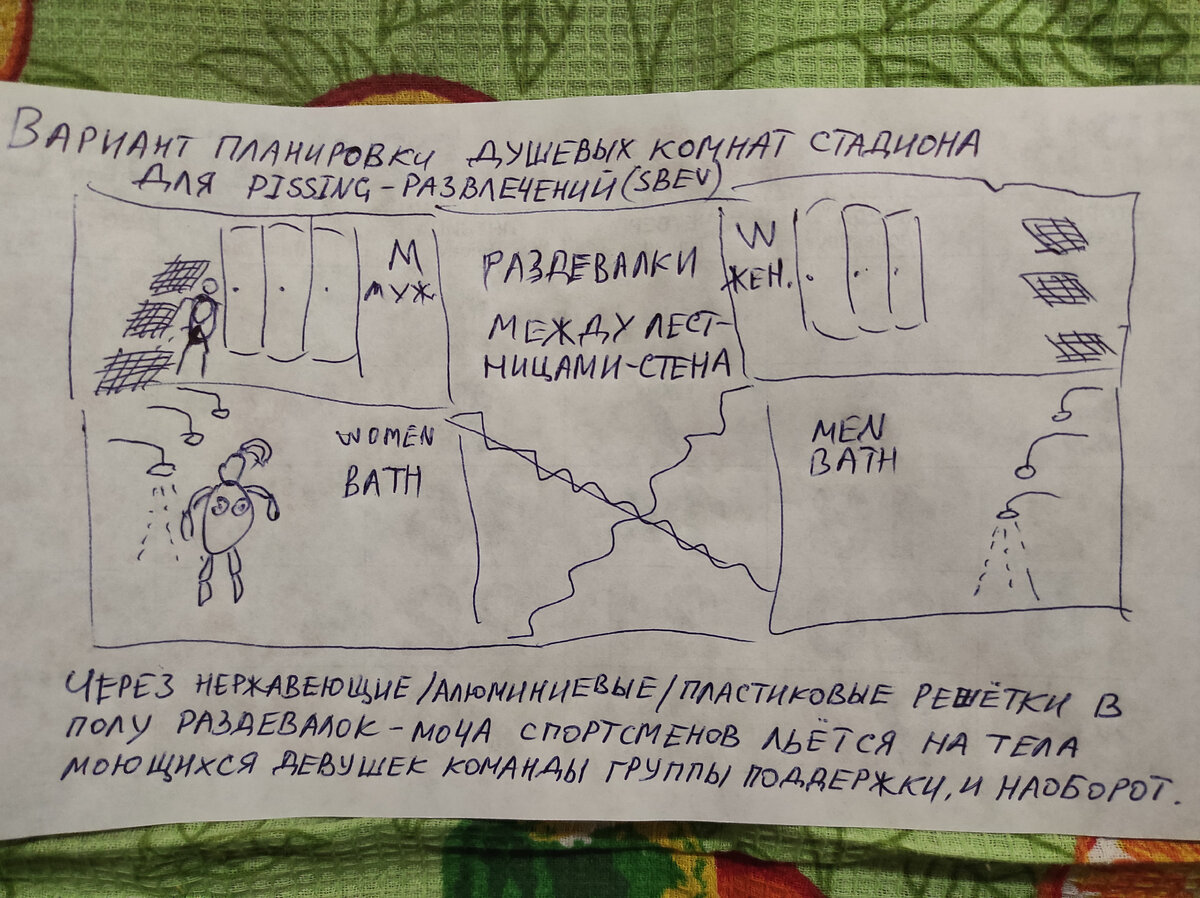 ВАРИАНТ ПЛАНИРОВКИ ДУШЕВЫХ КОМНАТ СТАДИОНА
ДЛЯ PISSING-РАЗВЛЕЧЕНИЙ (SBEV)
М
МУЖ.
РАЗДЕВАЛКИ
МЕЖДУ ЛЕСТ-
НИЦАМИ-СТЕНА
W
ЖЕН.
WOMEN
BATH
MEN
BATH
ЧЕРЕЗ НЕРЖАВЕЮЩИЕ/АЛЮМИНИЕВЫЕ/ПЛАСТИКОВЫЕ РЕШЁТКИ В
ПОЛУ РАЗДЕВАЛОК-МОЧА СПОРТСМЕНОВ ЛЬЁТСЯ НА ТЕЛА
МОЮЩИХСЯ ДЕВУШЕК КОМАНДЫ ГРУППЫ ПОДДЕРЖКИ, И НАОБОРОТ.